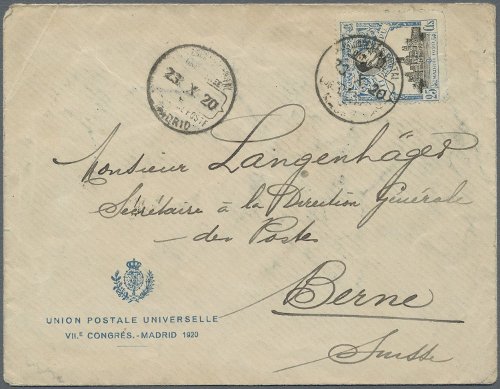 23 X 20
MADRID
23 X 20
Monsieur Langenhäger
Secrétaire à la Direction Générale
des Postes
Berne
Suisse
UNION POSTALE UNIVERSELLE
VII.E CONGRÉS.-MADRID 1920